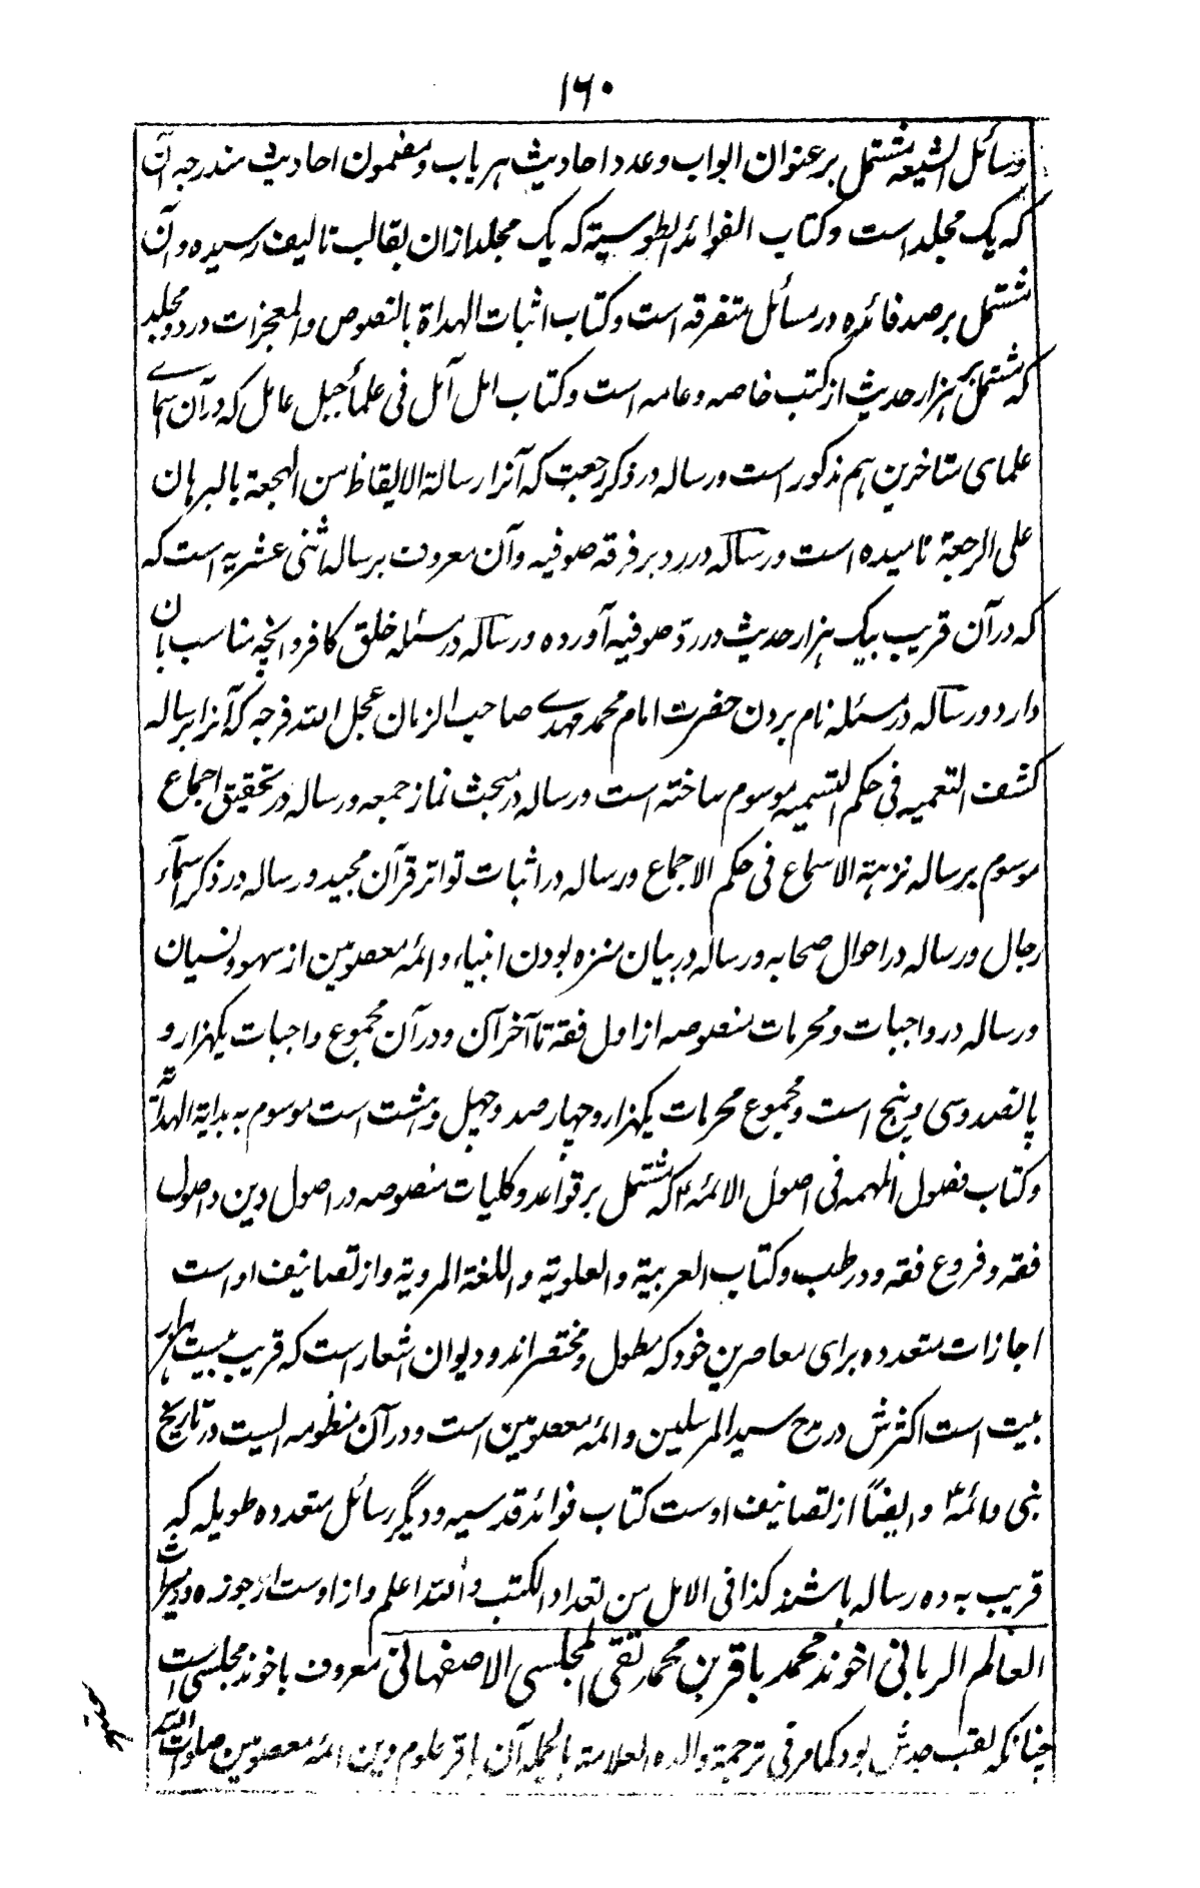 ۱۶۰
وسائل الشیعه مشتمل بر عنوان ابواب و عدد احادیث هر باب و مضمون احادیث مندرجه آن
که یک مجلد است و کتاب الفوائد الطوسیة که یک مجلد ازان بقالب تالیف رسیده و آن
مشتمل بر صد فائده در مسائل متفرقه است و کتاب اثبات الهداة بالنصوص والمعجزات در دو مجلد
که مشتمل بر هزار حدیث از کتب خاصه و عامه است و کتاب امل آمل فی علمأ جبل عامل که در آن اسمای
علمای متاخرین هم مذکور است و رساله در ذکر رجعت که آنرا رسالة الایقاظ من الهجعة بالبرهان
علی الرجعة نامیده است و رساله در رد بر فرقه صوفیه و آن معروف برساله اثنی عشریه است که
که در آن قریب بیک هزار حدیث در ردّ صوفیه آورده و رساله در مسئله خلق کافر و انچه مناسب بان
دارد و رساله در مسئله نام بردن حضرت امام محمد مهدی صاحب الزمان عجل الله فرجه که آنرا برساله
کشف التعمیه فی حکم التسمیه موسوم ساخته است و رساله در مبحث نماز جمعه و رساله در تحقیق اجماع
موسوم برساله نزهة الاسماع فی حکم الاجماع و رساله در اثبات تواتر قرآن مجید و رساله در ذکر اسمآء
رجال و رساله در احوال صحابه و رساله در بیان منزه بودن انبیاء و ائمه معصومین از سهو و نسیان
و رساله در واجبات و محرمات منصوصه از اول فقه تا آخر آن و در آن مجموع واجبات یکهزار و
پانصد و سی و پنج است و مجموع محرمات یکهزار و چهار صد و چهل و هشت است موسوم به بدایة الهدایة
و کتاب فصول المهمه فی اصول الائمه ع که مشتمل بر قواعد و کلیات منصوصه در اصول دین و اصول
فقه و فروع فقه و در طب و کتاب العربیة و العلویة و اللغة المرویة و از تصانیف او است
اجازات متعدده برای معاصرین خود که مطول و مختصر اند و دیوان اشعار است که قریب بیست هزار
بیت است اکثرش در مدح سید المرسلین و ائمه معصومین است و در آن منظومه ایست در تاریخ
نبی و ائمه ع و ایضاً از تصانیف اوست کتاب فوائد قدسیه و دیگر رسائل متعدده طویله که
قریب به ده رساله باشند کذا فی الامل من تعداد الکتب و الله اعلم و از اوست ارجوزه در میراث
العالم الربانی اخوند محمد باقر بن محمد تقی المجلسی الاصفهانی معروف باخوند مجلسی است
چنانکه لقب جدش بود کما مر فی ترجمة والده العلامة بالجمله آن باقر علوم دین ائمه معصومین صلوات الله